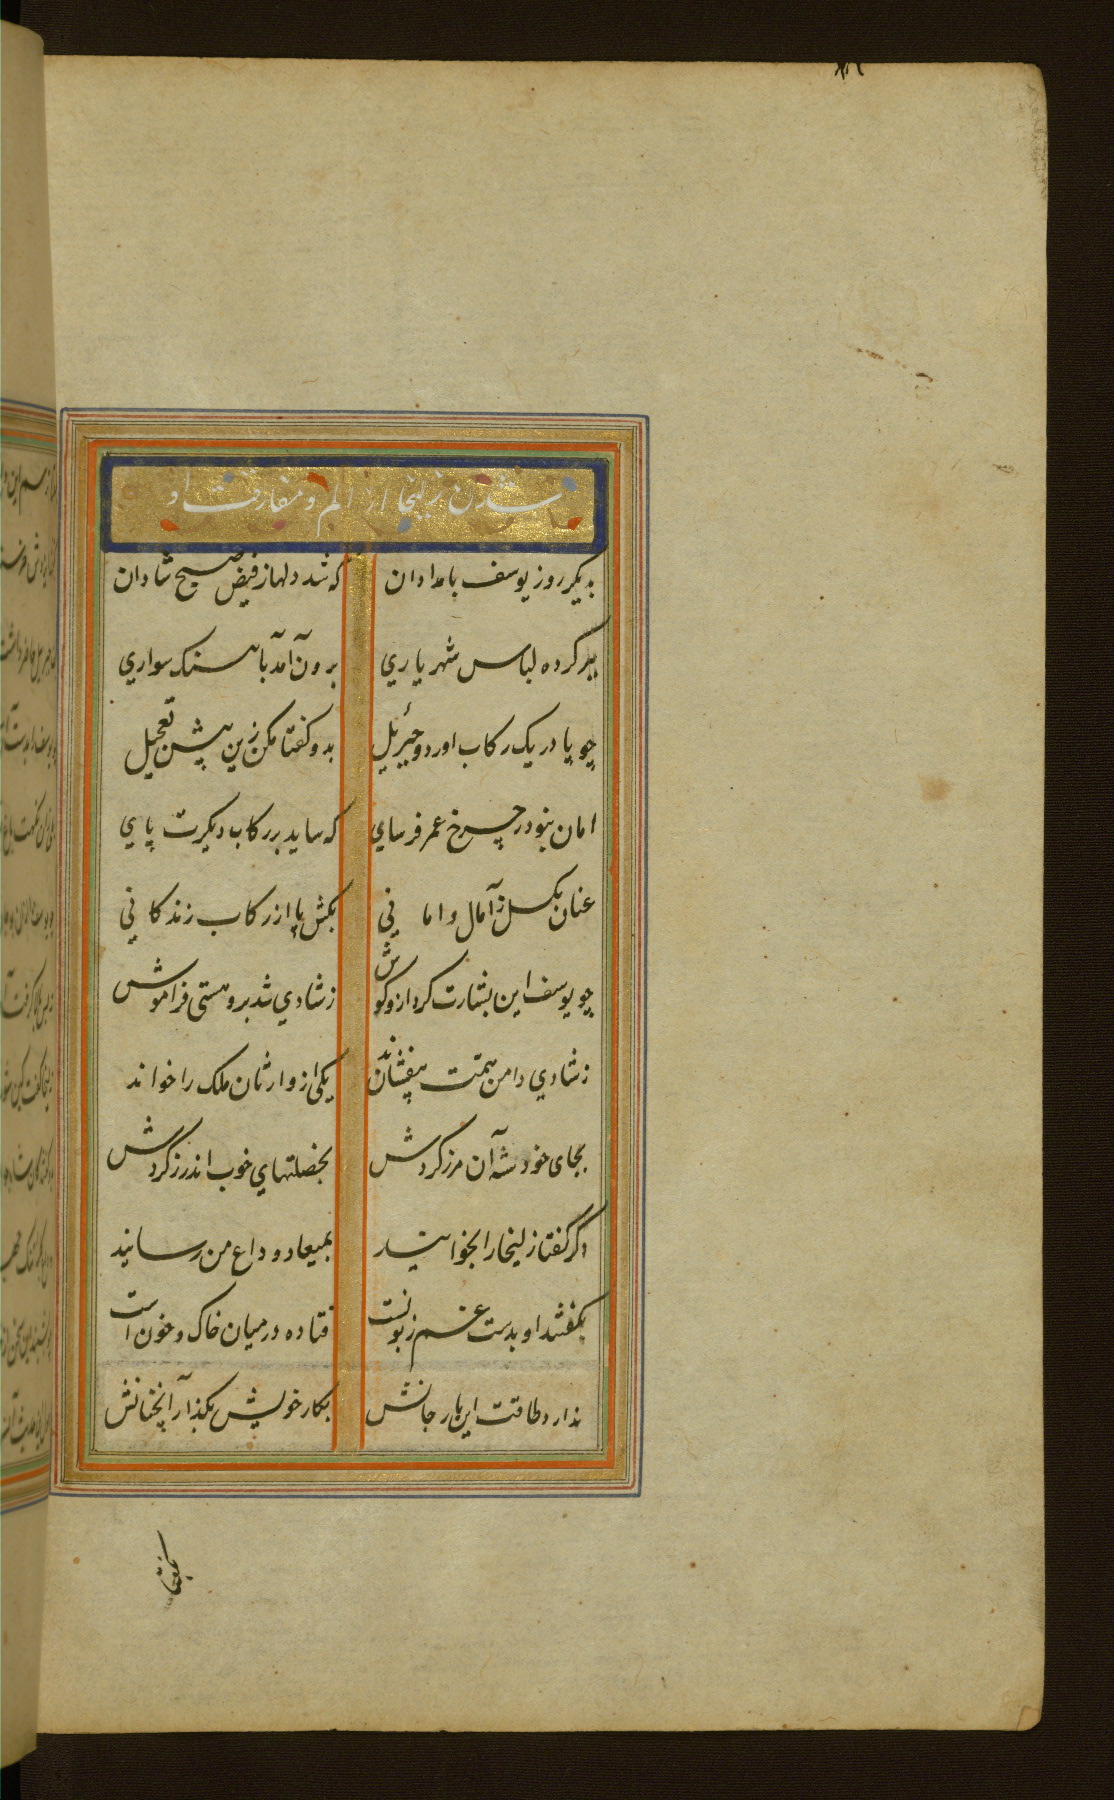 شدن زلیخا از الم و مفارقت او
بدیکر روز یوسف بامدادان که شد دلها ز فیض صبح شادان
ببر کرده لباس شهریاري برون آمد بآهنک سواري
چو پا در یک رکاب اورد جبرئیل بدو کفتا مکن زین پیش تعجیل
امان نبود ز چرخ عمر فرساي که ساید بر رکاب دیکرت پاي
عنان بکسل ز آمال و اماني بکش پا از رکاب زندکاني
چو یوسف این بشارت کرد ازو کوش ز شادي شد برو هستی فراموش
ز شادي دامن همت بیفشاند یکی از وارثان ملک را خواند
بجای خود شه آن مرز کردش بخصلتهاي خوب اندرز کردش
دکر کفتا زلیخا را بخوانید بمیعاد وداع من رسانید
بکفتند او بدست غم زبونست فتاده در میان خاک و خون است
ندارد طاقت این بار جانش بکار خویش بکذار آنچنانش
بکفتا